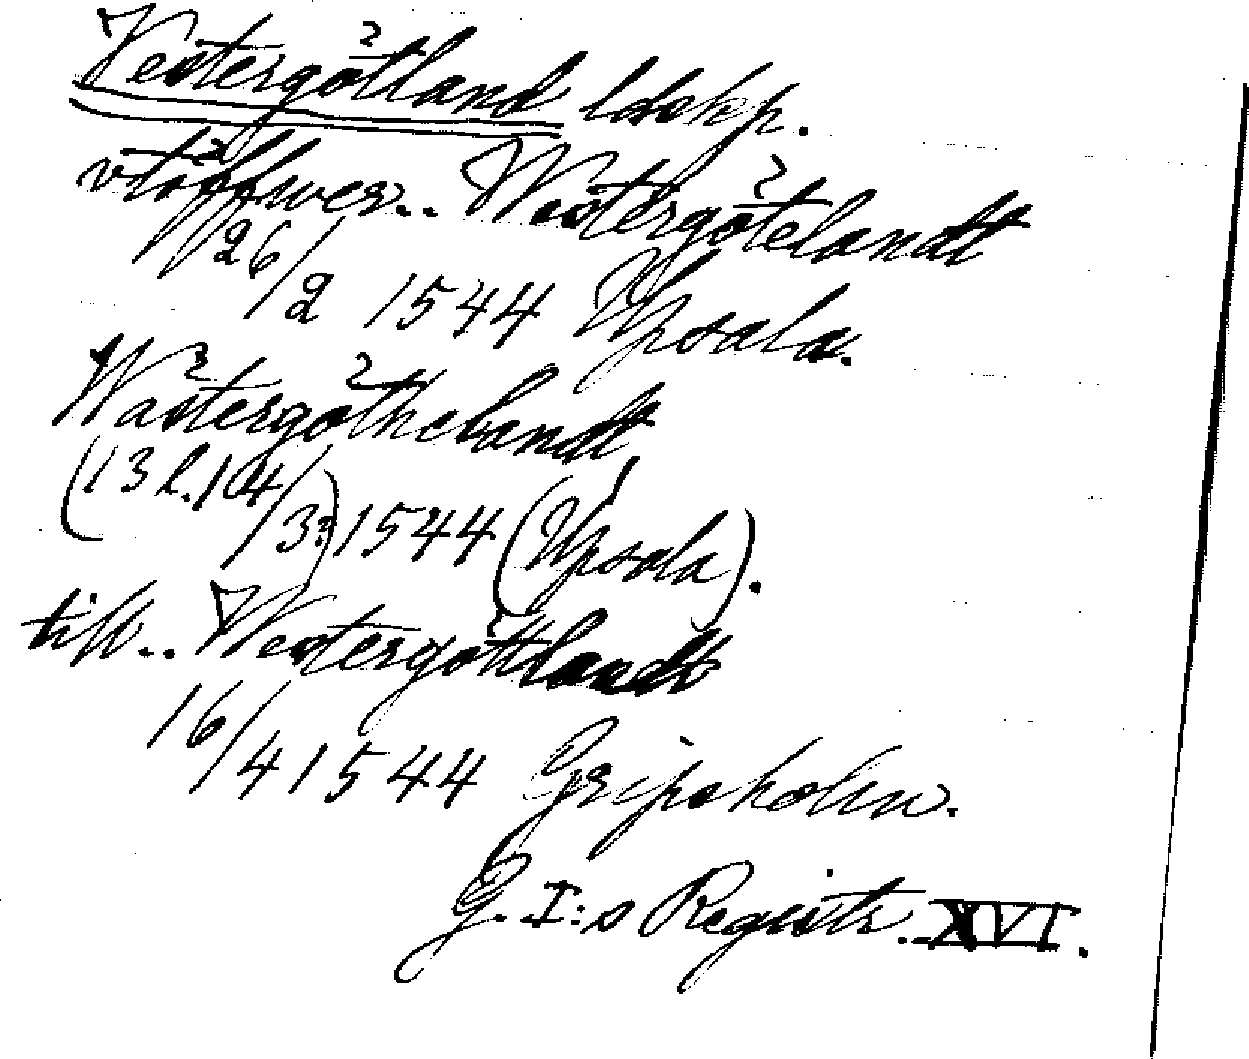 Vestergötland ldskp.
vtöffwer.. Westergötelandt
26/2 1544 Upsala.
Wästergöthelandt
(13 l. 14/3?) 1544 (Upsala).
till.. Westergöttlandt
16/4 1544 Gripsholm.
G. I:s Registr. XVI.